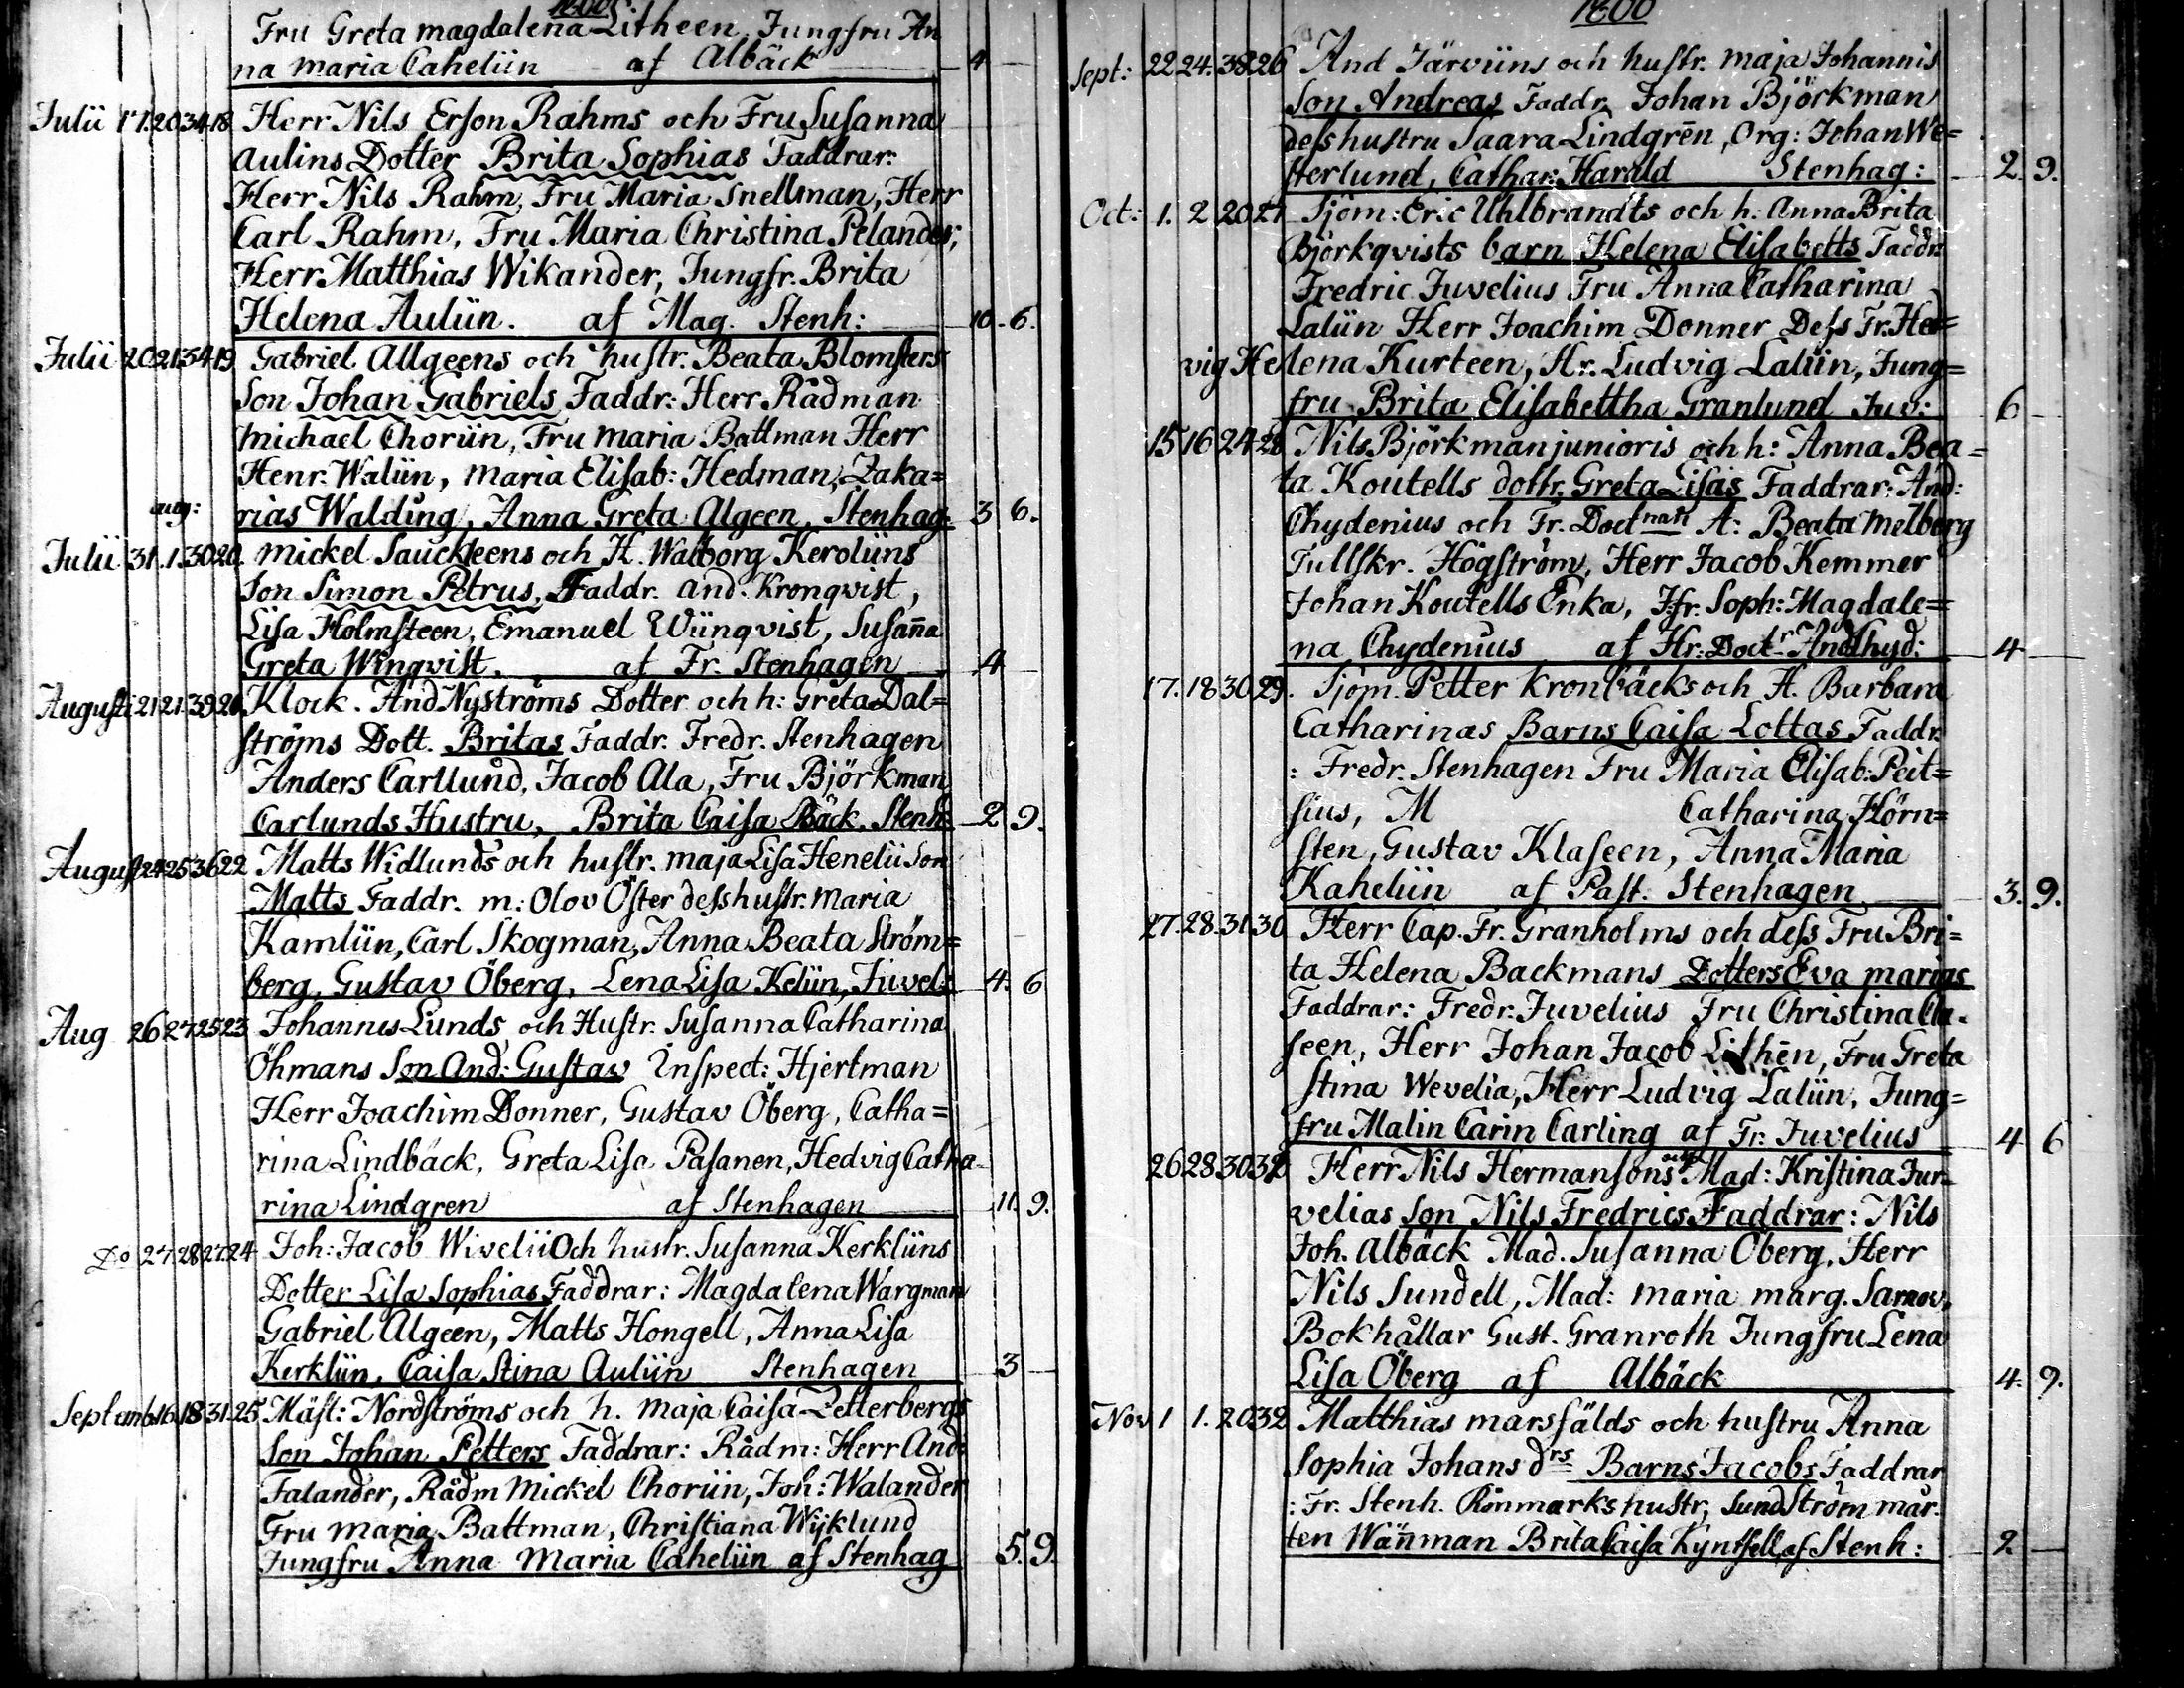 1800
Fru Greta magdalena Litheen, Jungfru An
na maria Caheliin af Albäck 4
Julii 17. 20 34 18 Herr Nils Erson Rahms och Fru Susanna
Aulins Dotter Brita Sophias Faddrar:
Herr Nils Rahm, Fru Maria Snellman, Herr
Carl Rahm, Fru Maria Christina Pelander,
Herr Matthias Wikander, Jungfr. Brita
Helena Auliin. af Mag. Stenh: 10. 6.
Julii 20 21 34 19 Gabriel Allgeens och hustr. Beata Blomsters
Son Johan Gabriels Faddr: Herr Rådman
Michael Choriin, Fru Maria Battman Herr
Henr. Waliin, Maria Elisab: Hedman, Zaka=
aug: rias Walding, Anna Greta Algeen, Stenhag: 3 6.
Julii 31. 1. 30 20. Mickel Sauckleens och H. Walborg Keroliins
Son Simon Petrus, Faddr. And. Kronqvist,
Lisa Holmsteen, Emanuel Wiinqvist, Susaña
Greta Winqvist. af Fr. Stenhagen 4
Augusti 21 21 39 Klock. And Nyströms Dotter och h: Greta Dal=
ströms Dott. Britas Faddr. Fredr. Stenhagen
Anders Carllund, Jacob Ala, Fru Björkman
Carlunds Hustru, Brita Caisa Bäck. Stenh: 2 9.
August 24 25 36 22 Matts Widlunds och hustr. maja Lisa Henelii Son
Matts Faddr. m: Olov Öster dess hustr. Maria
Kamliin, Carl Skogman, Anna Beata Ström=
berg, Gustav Öberg, Lena Lisa Keliin, Juvel: 4. 6
Aug 26 27 25 23 Johannes Lunds och Hustr. Susanna Catharina
Öhmans Son And: Gustav Inspect: Hjertman
Herr Joachim Donner, Gustav Öberg, Catha=
rina Lindbäck, Greta Lisa Pasanen, Hedvig Catha
rina Lindgren af Stenhagen 11. 9.
Do 27. 28 27. 24 Joh: Jacob Wivelii Och hustr. Susanna Kerkliins
Dotter Lisa Sophias Faddrar: Magdalena Wargman
Gabriel Algeen, Matts Hongell, Anna Lisa
Kerkliin, Caisa Stina Auliin Stenhagen 3
Septemb 16. 18 31. 25 Mäst: Nordströms och h. Maja Caisa Zetterbergs
Son Johan Petters Faddrar: Rådm: Herr And:
Falander, Rådm Mickel Choriin, Joh: Walander
Fru Maria Battman, Christiana Wijklund
Jungfru Anna Maria Caheliin af Stenhag 5. 9.
1800
Sept: 22 24. 38 26 And Järviins och hustr. Maja Johannis
Son Andreas Faddr. Johan Björkman
dess hustru Saara Lindgrēn, Org: Johan We=
sterlund, Cathar: Harald Stenhag: 2. 9.
Oct: 1. 2 20 27 Sjöm: Eric Uhlbrandts och h: Anna Brita
Björkqvists barn Helena Elisabetts Faddr:
Fredric Juvelius Fru Anna Catharina
Laliin Herr Joachim Donner Dess Fr. Hed=
vig Helena Kurteen, Hr. Ludvig Laliin, Jung=
fru Brita Elisabettha Granlund Juv: 6
15 16 24 28 Nils Björkman junioris och h: Anna Bea=
ta Koutells dottr. Greta Lisas Faddrar: And:
Chydenius och Fr. Doct nan A: Beata Melberg
Tullskr. Högström, Herr Jacob Kemmer
Johan Koutells Enka, Jfr. Soph: Magdale=
na Chydenius af Hr: Doctr And Chyd: 4
17. 18 30 29. Sjöm. Petter Kronbäcks och H. Barbara
Catharinas Barns Caisa Lottas Faddr.
: Fredr. Stenhagen Fru Maria Elisab: Peit=
sius, M Catharina Hörn=
sten, Gustav Klaseen, Anna Maria
Kaheliin af Past. Stenhagen 3. 9.
27. 28. 31 30 Herr Cap. Fr. Granholms och dess Fru Bri=
ta Helena Backmans Dotters Eva marias
Faddrar: Fredr. Juvelius Fru Christina Cla.
seen, Herr Johan Jacob Lithēn, Fru Greta
Stina Wevelia, Herr Ludvig Laliin, Jung=
fru Malin Carin Carling af Fr: Juvelius 4 6
26 28 30 Herr Nils Hermansons och Mad: Kristina Ju=
velias Son Nils Fredrics Faddrar: Nils
Joh. Albäck Mad. Susanna Öberg, Herr
Nils Sundell, Mad: Maria Marg.
Bokhållar Gust. Granroth Jungfru Lena
Lisa Öberg af Albäck 4. 9.
Nov 1 1. 20 32 Matthias marsfälds och hustru Anna
Sophia Johans drs Barns Jacobs Faddrar
: Fr. Stenh. Rönmarks hustr, Sundström mår.
ten Wänman Brita Caisa Kyntsell af Stenh: 2